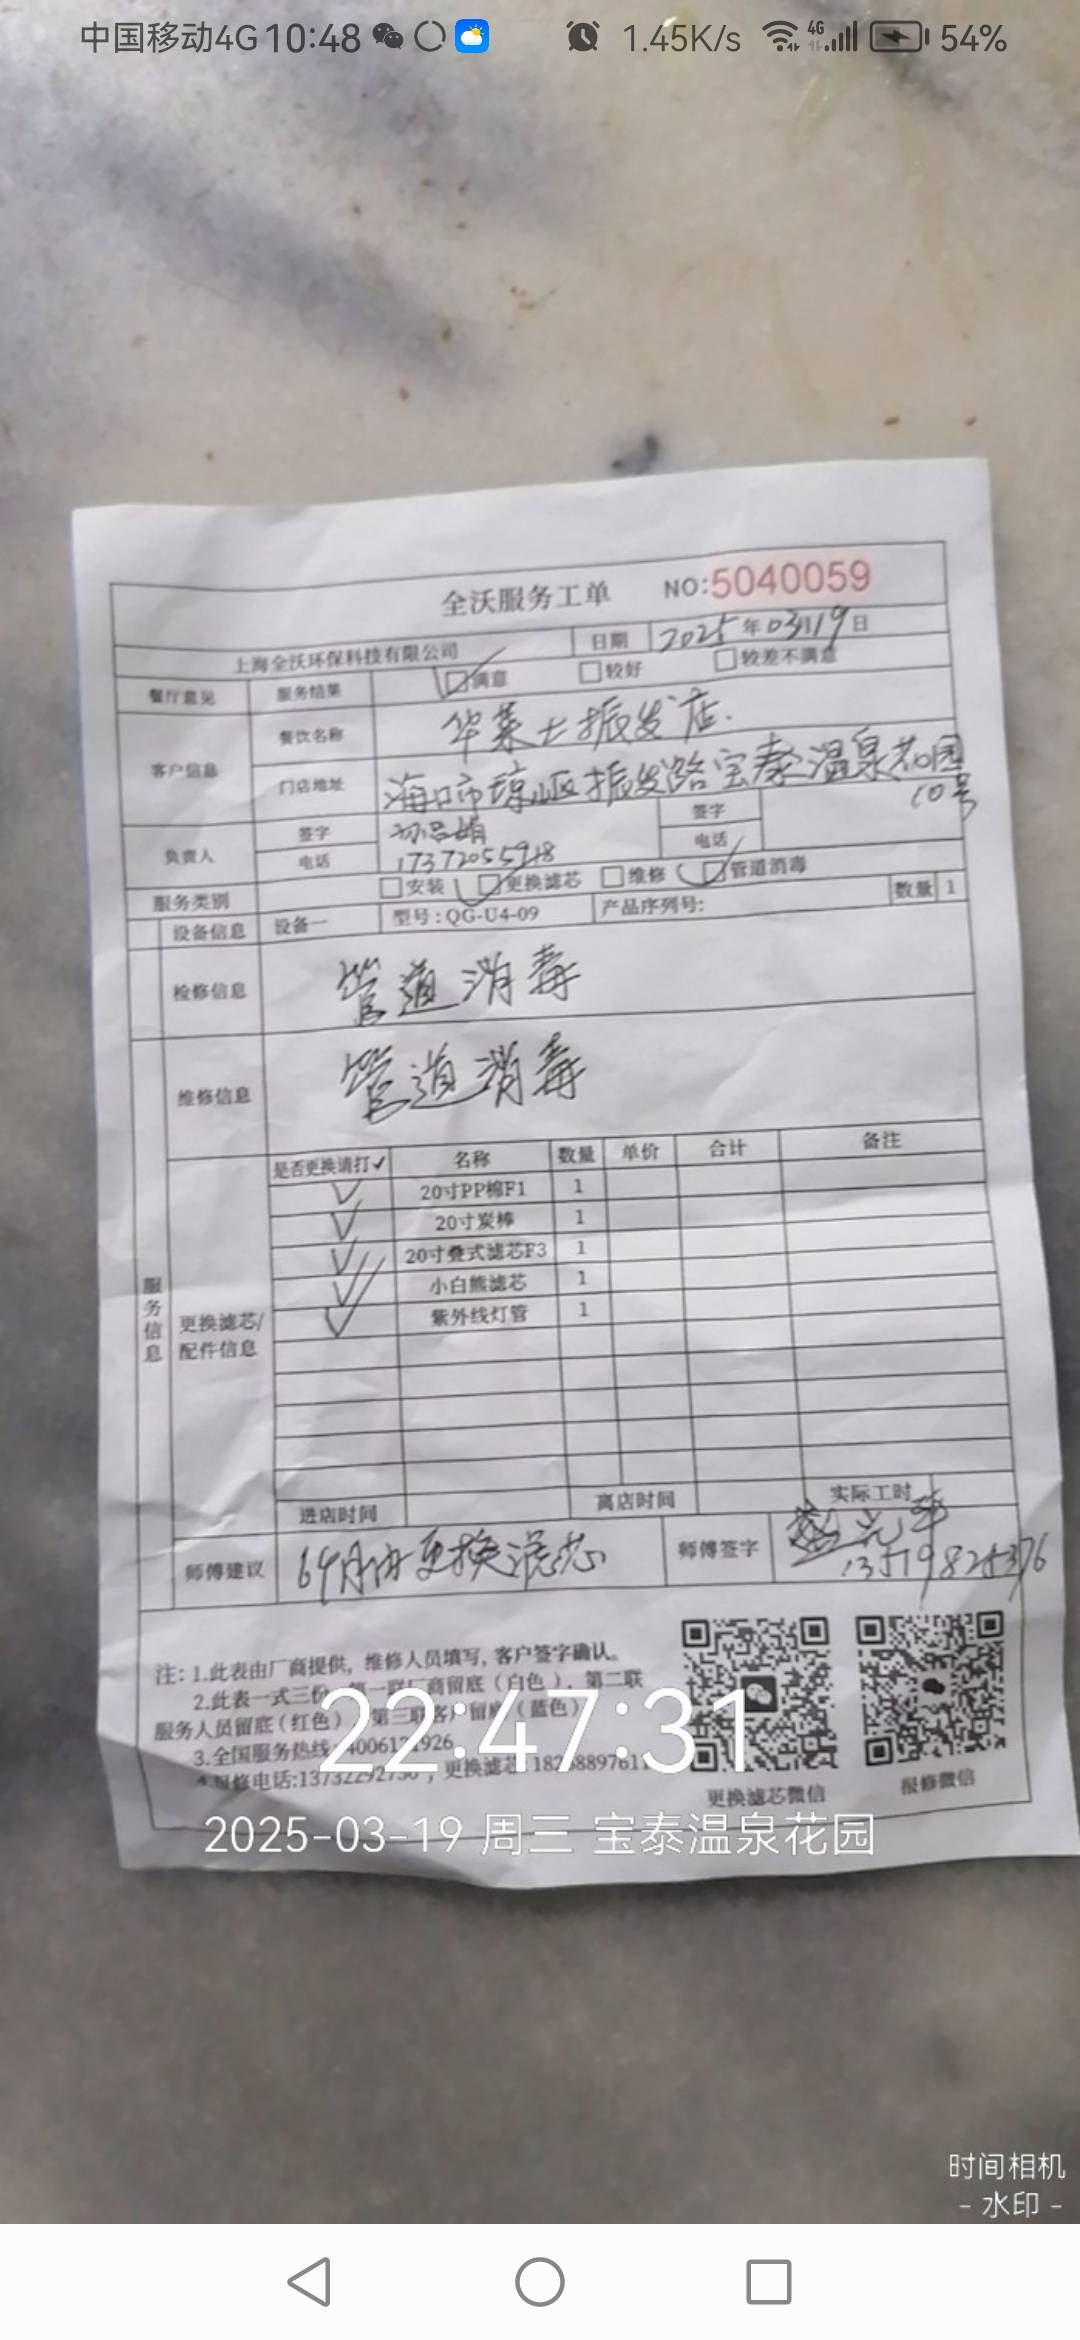 中国移动4G 10:48 1.45K/s 4G 54%
全沃服务工单 NO:5040059
上海全沃环保科技有限公司 日期 2025年03月19日
餐厅意见 服务结果 满意 较好 较差不满意
客户信息 餐饮名称 华莱士振发店.
门店地址 海口市琼山区振发路宝泰温泉花园
10号
负责人 签字 签字
电话 17372055918 电话
服务类别 安装 更换滤芯 维修 管道消毒
设备信息 设备一 型号:QG-U4-09 产品序列号: 数量 1
检修信息 管道消毒
维修信息 管道消毒
服务信息
更换滤芯/配件信息
是否更换请打✓ 名称 数量 单价 合计 备注
✓ 20寸PP棉F1 1
✓ 20寸炭棒 1
✓ 20寸叠式滤芯F3 1
✓ 小白熊滤芯 1
✓ 紫外线灯管 1
进店时间 离店时间 实际工时
师傅建议 6个月后更换滤芯 师傅签字
13519825376
注: 1.此表由厂商提供, 维修人员填写, 客户签字确认。
2.此表一式三份, 第一联厂商留底(白色), 第二联
服务人员留底(红色), 第三联客户留底(蓝色)
3.全国服务热线
报修电话: 更换滤芯
更换滤芯微信 报修微信
22:47:31
2025-03-19 周三 宝泰温泉花园
时间相机
- 水印 -